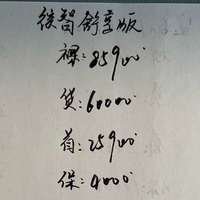 缤智舒享版
裸:85900
贷:60000
首:25900
保:4000